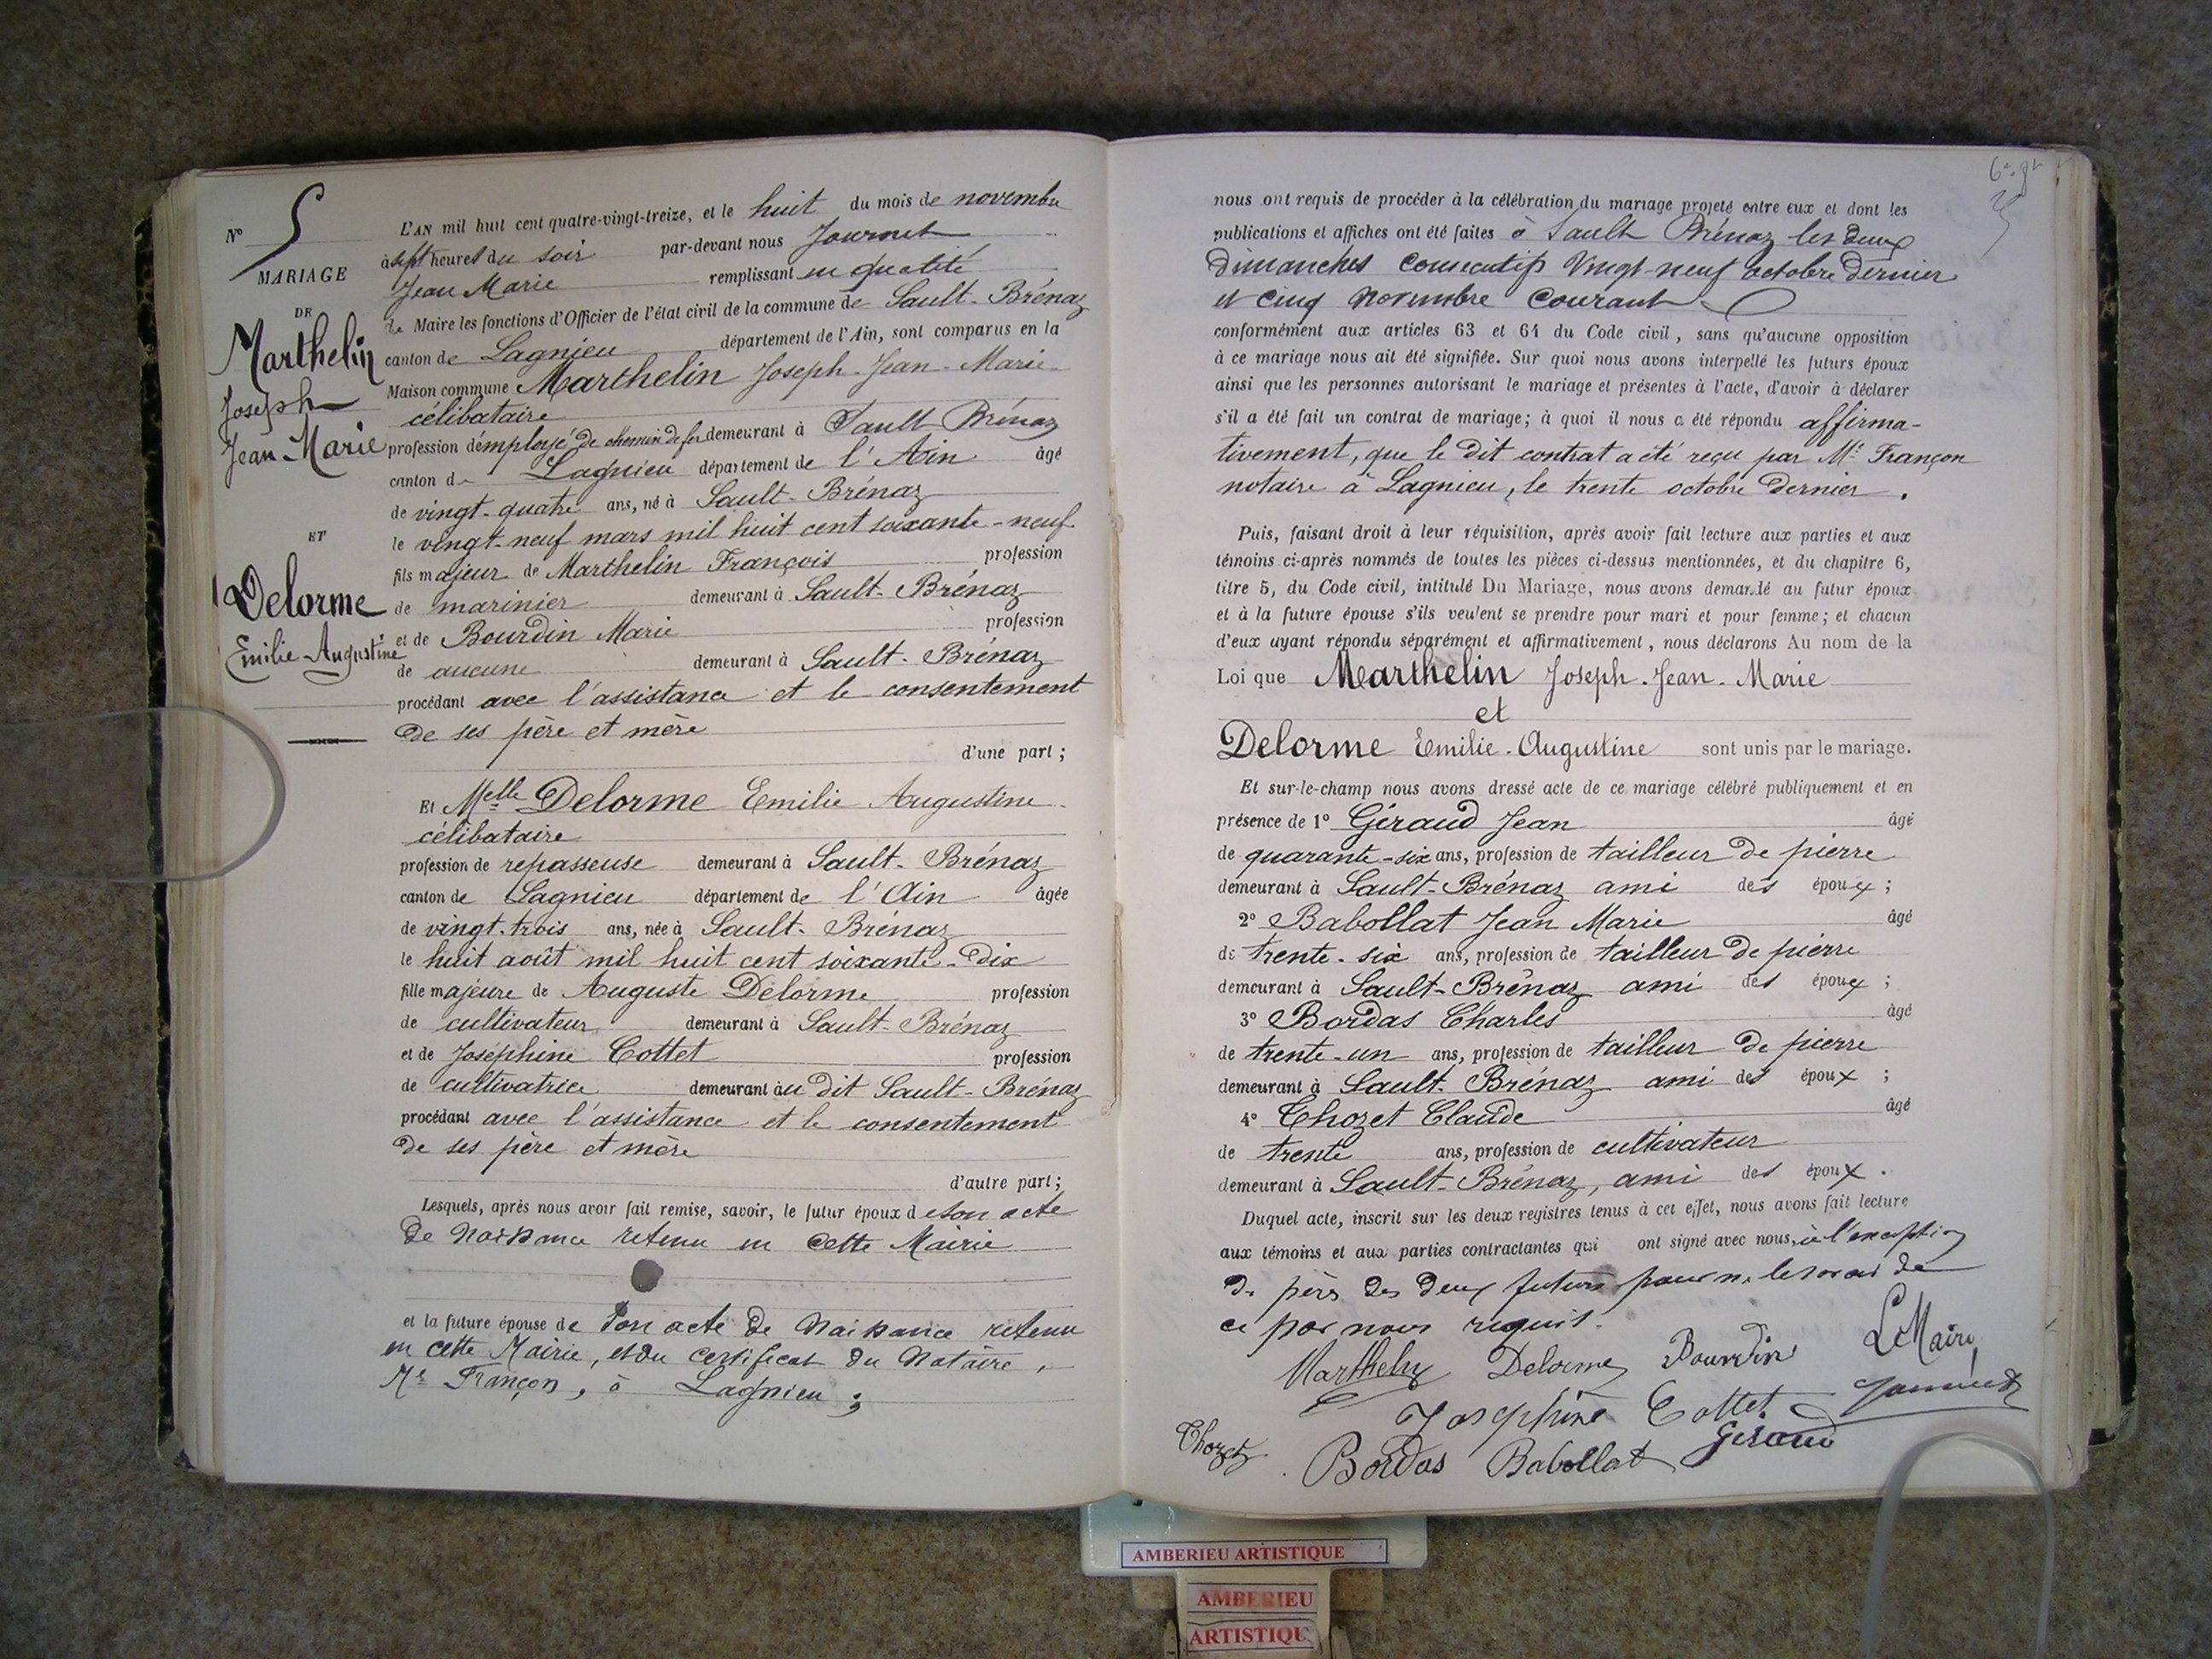 N° 5
MARIAGE
DE
Marthelin
Joseph
Jean-Marie
ET
Delorme
Emilie-Augustine
L'AN mil huit cent quatre-vingt-treize, et le huit du mois de novembre
à sept heures du soir par-devant nous Journet
Jean Marie remplissant en qualité
de Maire les fonctions d'Officier de l'état civil de la commune de Sault-Brénaz
canton de Lagnieu département de l'Ain, sont comparus en la
Maison commune Marthelin Joseph-Jean-Marie
célibataire
profession d'employé de chemin de fer demeurant à Sault Brénaz
canton de Lagnieu département de l'Ain âgé
de vingt-quatre ans, né à Sault-Brénaz
le vingt-neuf mars mil huit cent soixante-neuf
fils majeur de Marthelin François profession
de marinier demeurant à Sault-Brénaz
et de Bourdin Marie profession
de aucune demeurant à Sault-Brénaz
procédant avec l'assistance et le consentement
de ses père et mère
d'une part;
Et Melle Delorme Emilie Augustine
célibataire
profession de repasseuse demeurant à Sault-Brénaz
canton de Lagnieu département de l'Ain âgée
de vingt-trois ans, née à Sault-Brénaz
le huit août mil huit cent soixante-dix
fille majeure de Auguste Delorme profession
de cultivateur demeurant à Sault-Brénaz
et de Joséphine Cottet profession
de cultivatrice demeurant au dit Sault-Brénaz
procédant avec l'assistance et le consentement
de ses père et mère
d'autre part;
Lesquels, après nous avoir fait remise, savoir, le futur époux de son acte
de Naissance retenu en cette Mairie
et la future épouse de son acte de Naissance retenu
en cette Mairie, et du certificat du Notaire,
Me Françon, à Lagnieu;
nous ont requis de procéder à la célébration du mariage projeté entre eux et dont les
publications et affiches ont été faites à Sault Brénaz les deux
dimanches consecutifs Vingt-neuf octobre dernier
et cinq novembre courant
conformément aux articles 63 et 64 du Code civil, sans qu'aucune opposition
à ce mariage nous ait été signifiée. Sur quoi nous avons interpellé les futurs époux
ainsi que les personnes autorisant le mariage et présentes à l'acte, d'avoir à déclarer
s'il a été fait un contrat de mariage; à quoi il nous a été répondu affirma-
tivement, que le dit contrat a été reçu par Me Françon
notaire à Lagnieu, le trente octobre dernier.
Puis, faisant droit à leur réquisition, après avoir fait lecture aux parties et aux
témoins ci-après nommés de toutes les pièces ci-dessus mentionnées, et du chapitre 6,
titre 5, du Code civil, intitulé Du Mariage, nous avons demandé au futur époux
et à la future épouse s'ils veulent se prendre pour mari et pour femme; et chacun
d'eux ayant répondu séparément et affirmativement, nous déclarons Au nom de la
Loi que Marthelin Joseph-Jean-Marie
et
Delorme Emilie-Augustine sont unis par le mariage.
Et sur-le-champ nous avons dressé acte de ce mariage célébré publiquement et en
présence de 1° Géraud Jean âgé
de quarante-six ans, profession de tailleur de pierre
demeurant à Sault-Brénaz ami des époux;
2° Babollat Jean Marie âgé
de trente-six ans, profession de tailleur de pierre
demeurant à Sault-Brénaz ami des époux;
3° Bordas Charles âgé
de trente-un ans, profession de tailleur de pierre
demeurant à Sault-Brénaz ami des époux;
4° Thozet Claude âgé
de trente ans, profession de cultivateur
demeurant à Sault-Brénaz, ami des époux.
Duquel acte, inscrit sur les deux registres tenus à cet effet, nous avons fait lecture
aux témoins et aux parties contractantes qui ont signé avec nous, à l'exception
de père des deux futurs pour ne le savoir de
ce par nous requis.
Marthelin Delorme Bourdin Le Maire
Joséphine Cottet Journet
Thozet Bordas Babollat Géraud
AMBERIEU ARTISTIQUE
AMBERIEU
ARTISTIQU